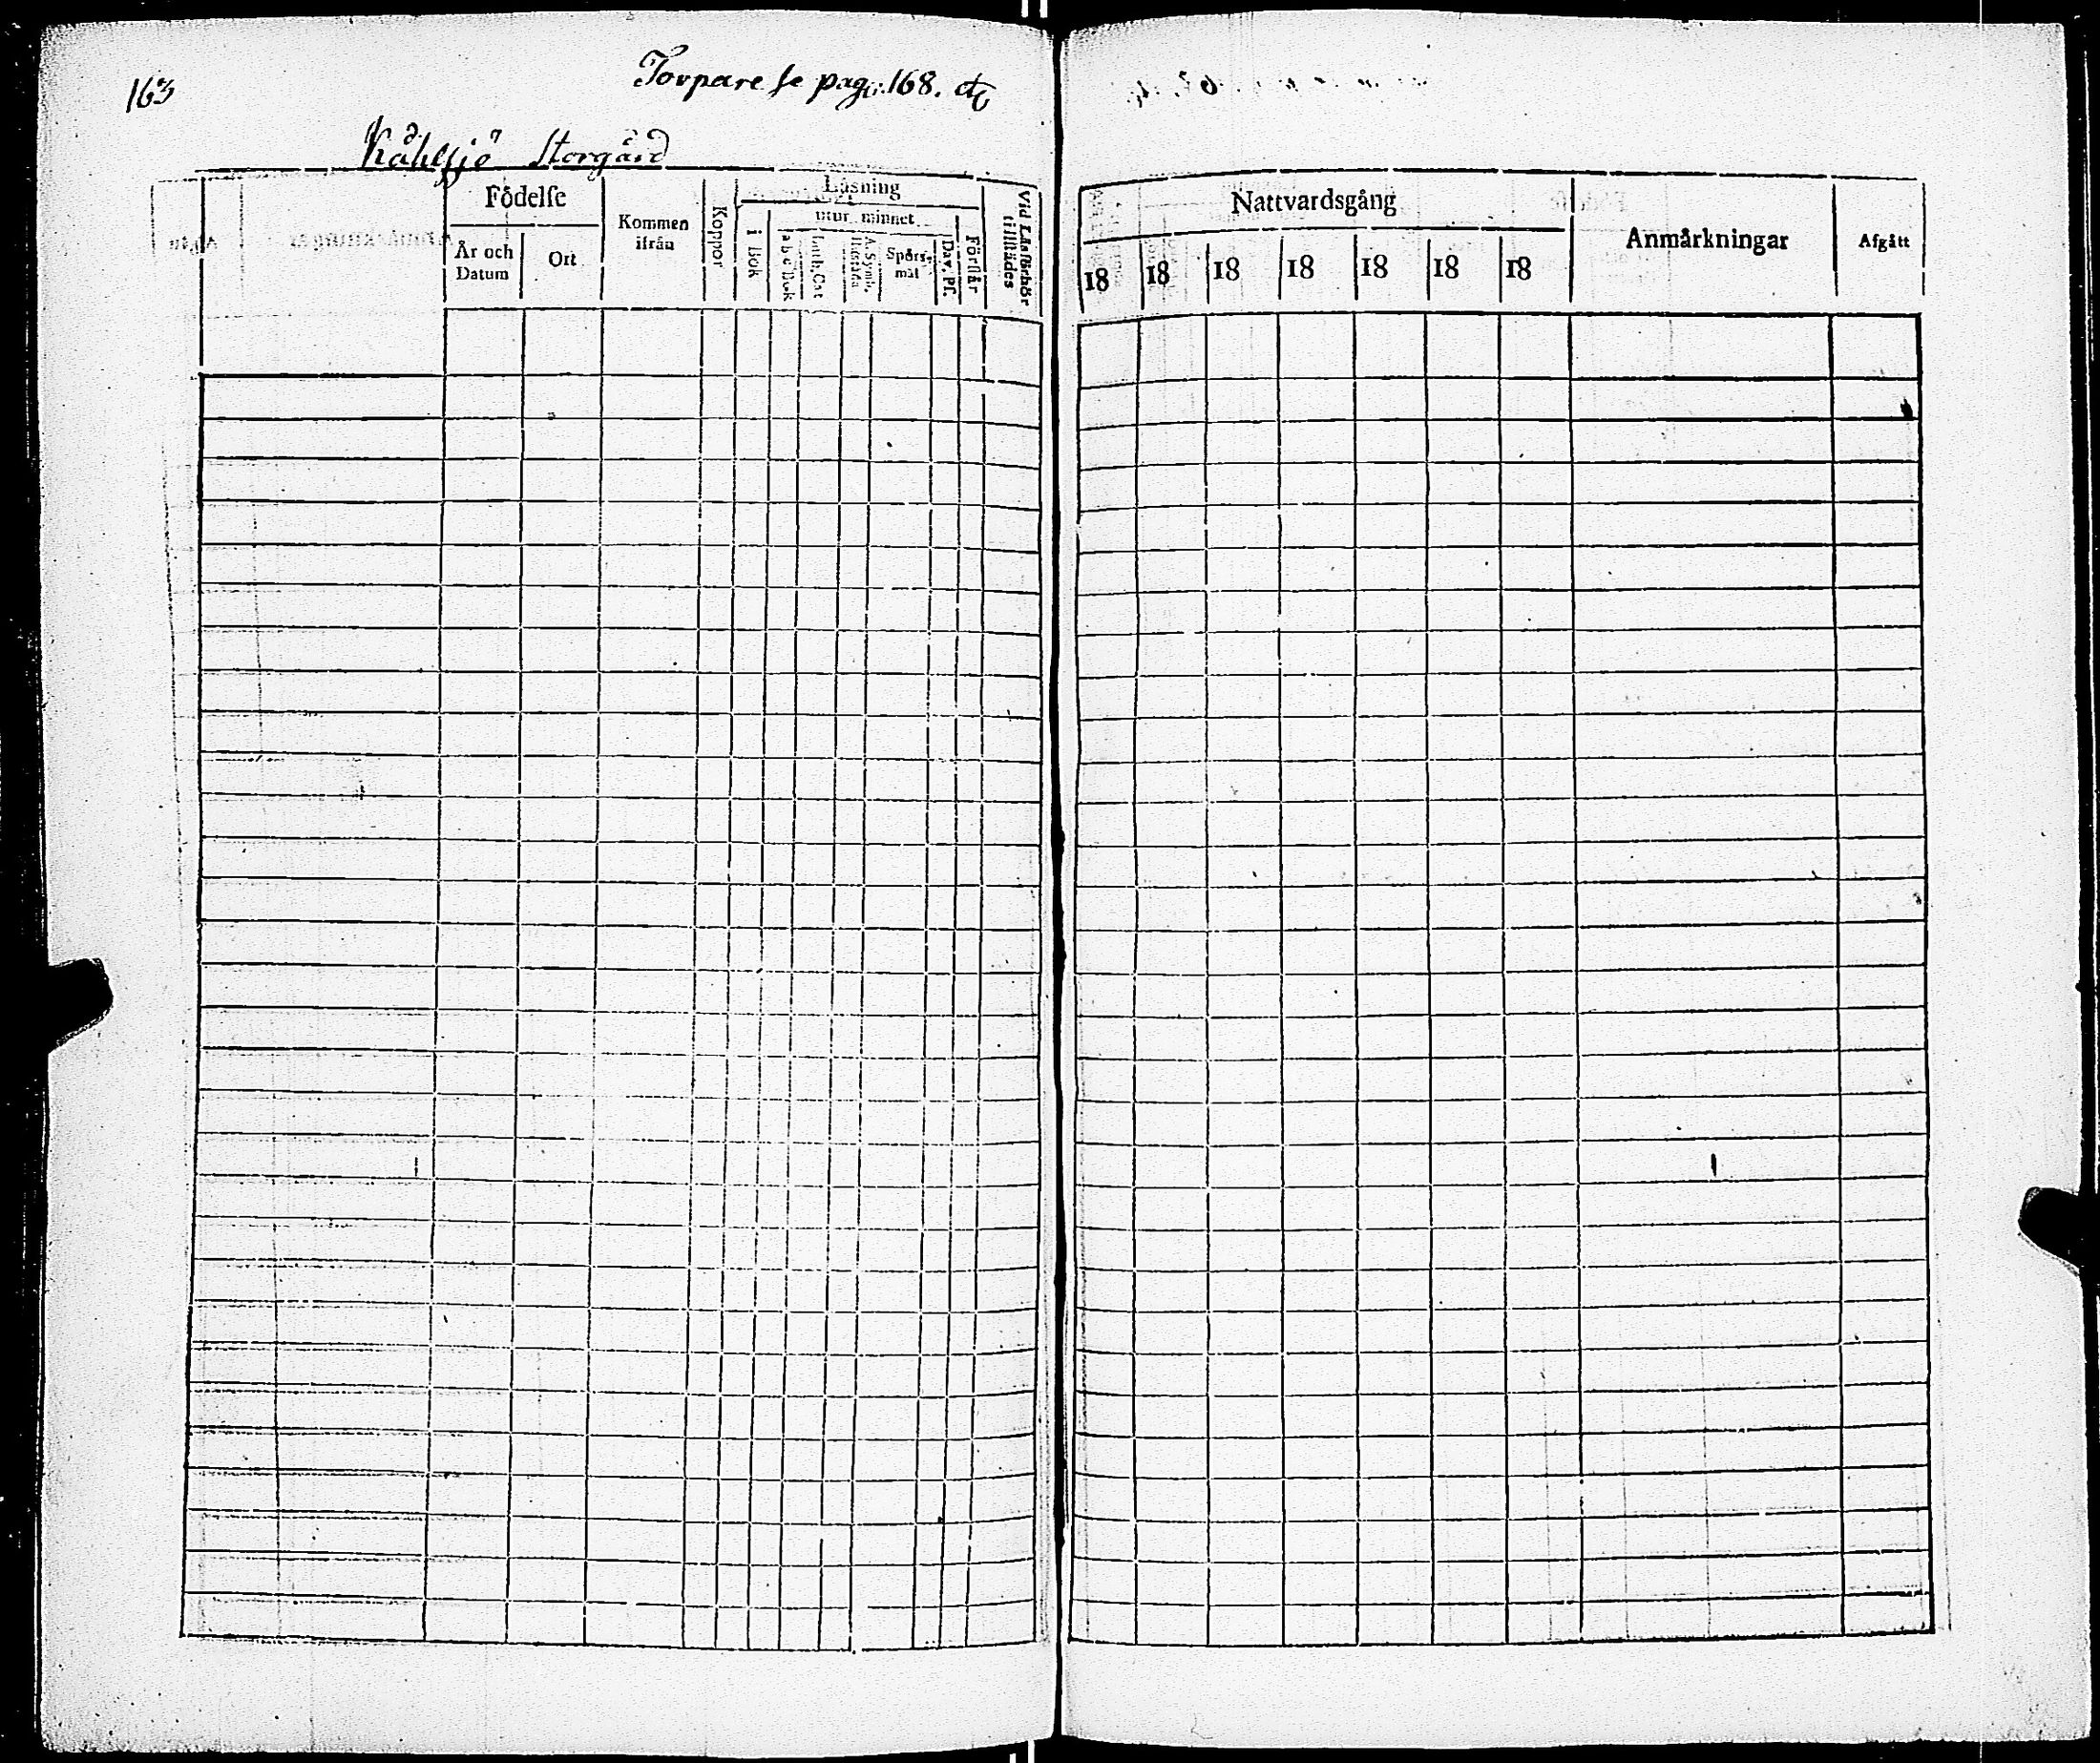 163
Torpare se pag. 168. etc
Kåhlsjö Storgård
Födelſe
År och Datum
Ort
Kommen ifrån
Koppor
Läsning
i Bok
utur minnet
a b c Bok
Luth. Cat
A. Symb. Hustafla
Spörs-mål
Dav. Pſ.
Förſtår
Vid Läsförhör tillſtädes
Nattvardsgång
18 18 18 18 18 18 18
Anmärkningar
Afgått